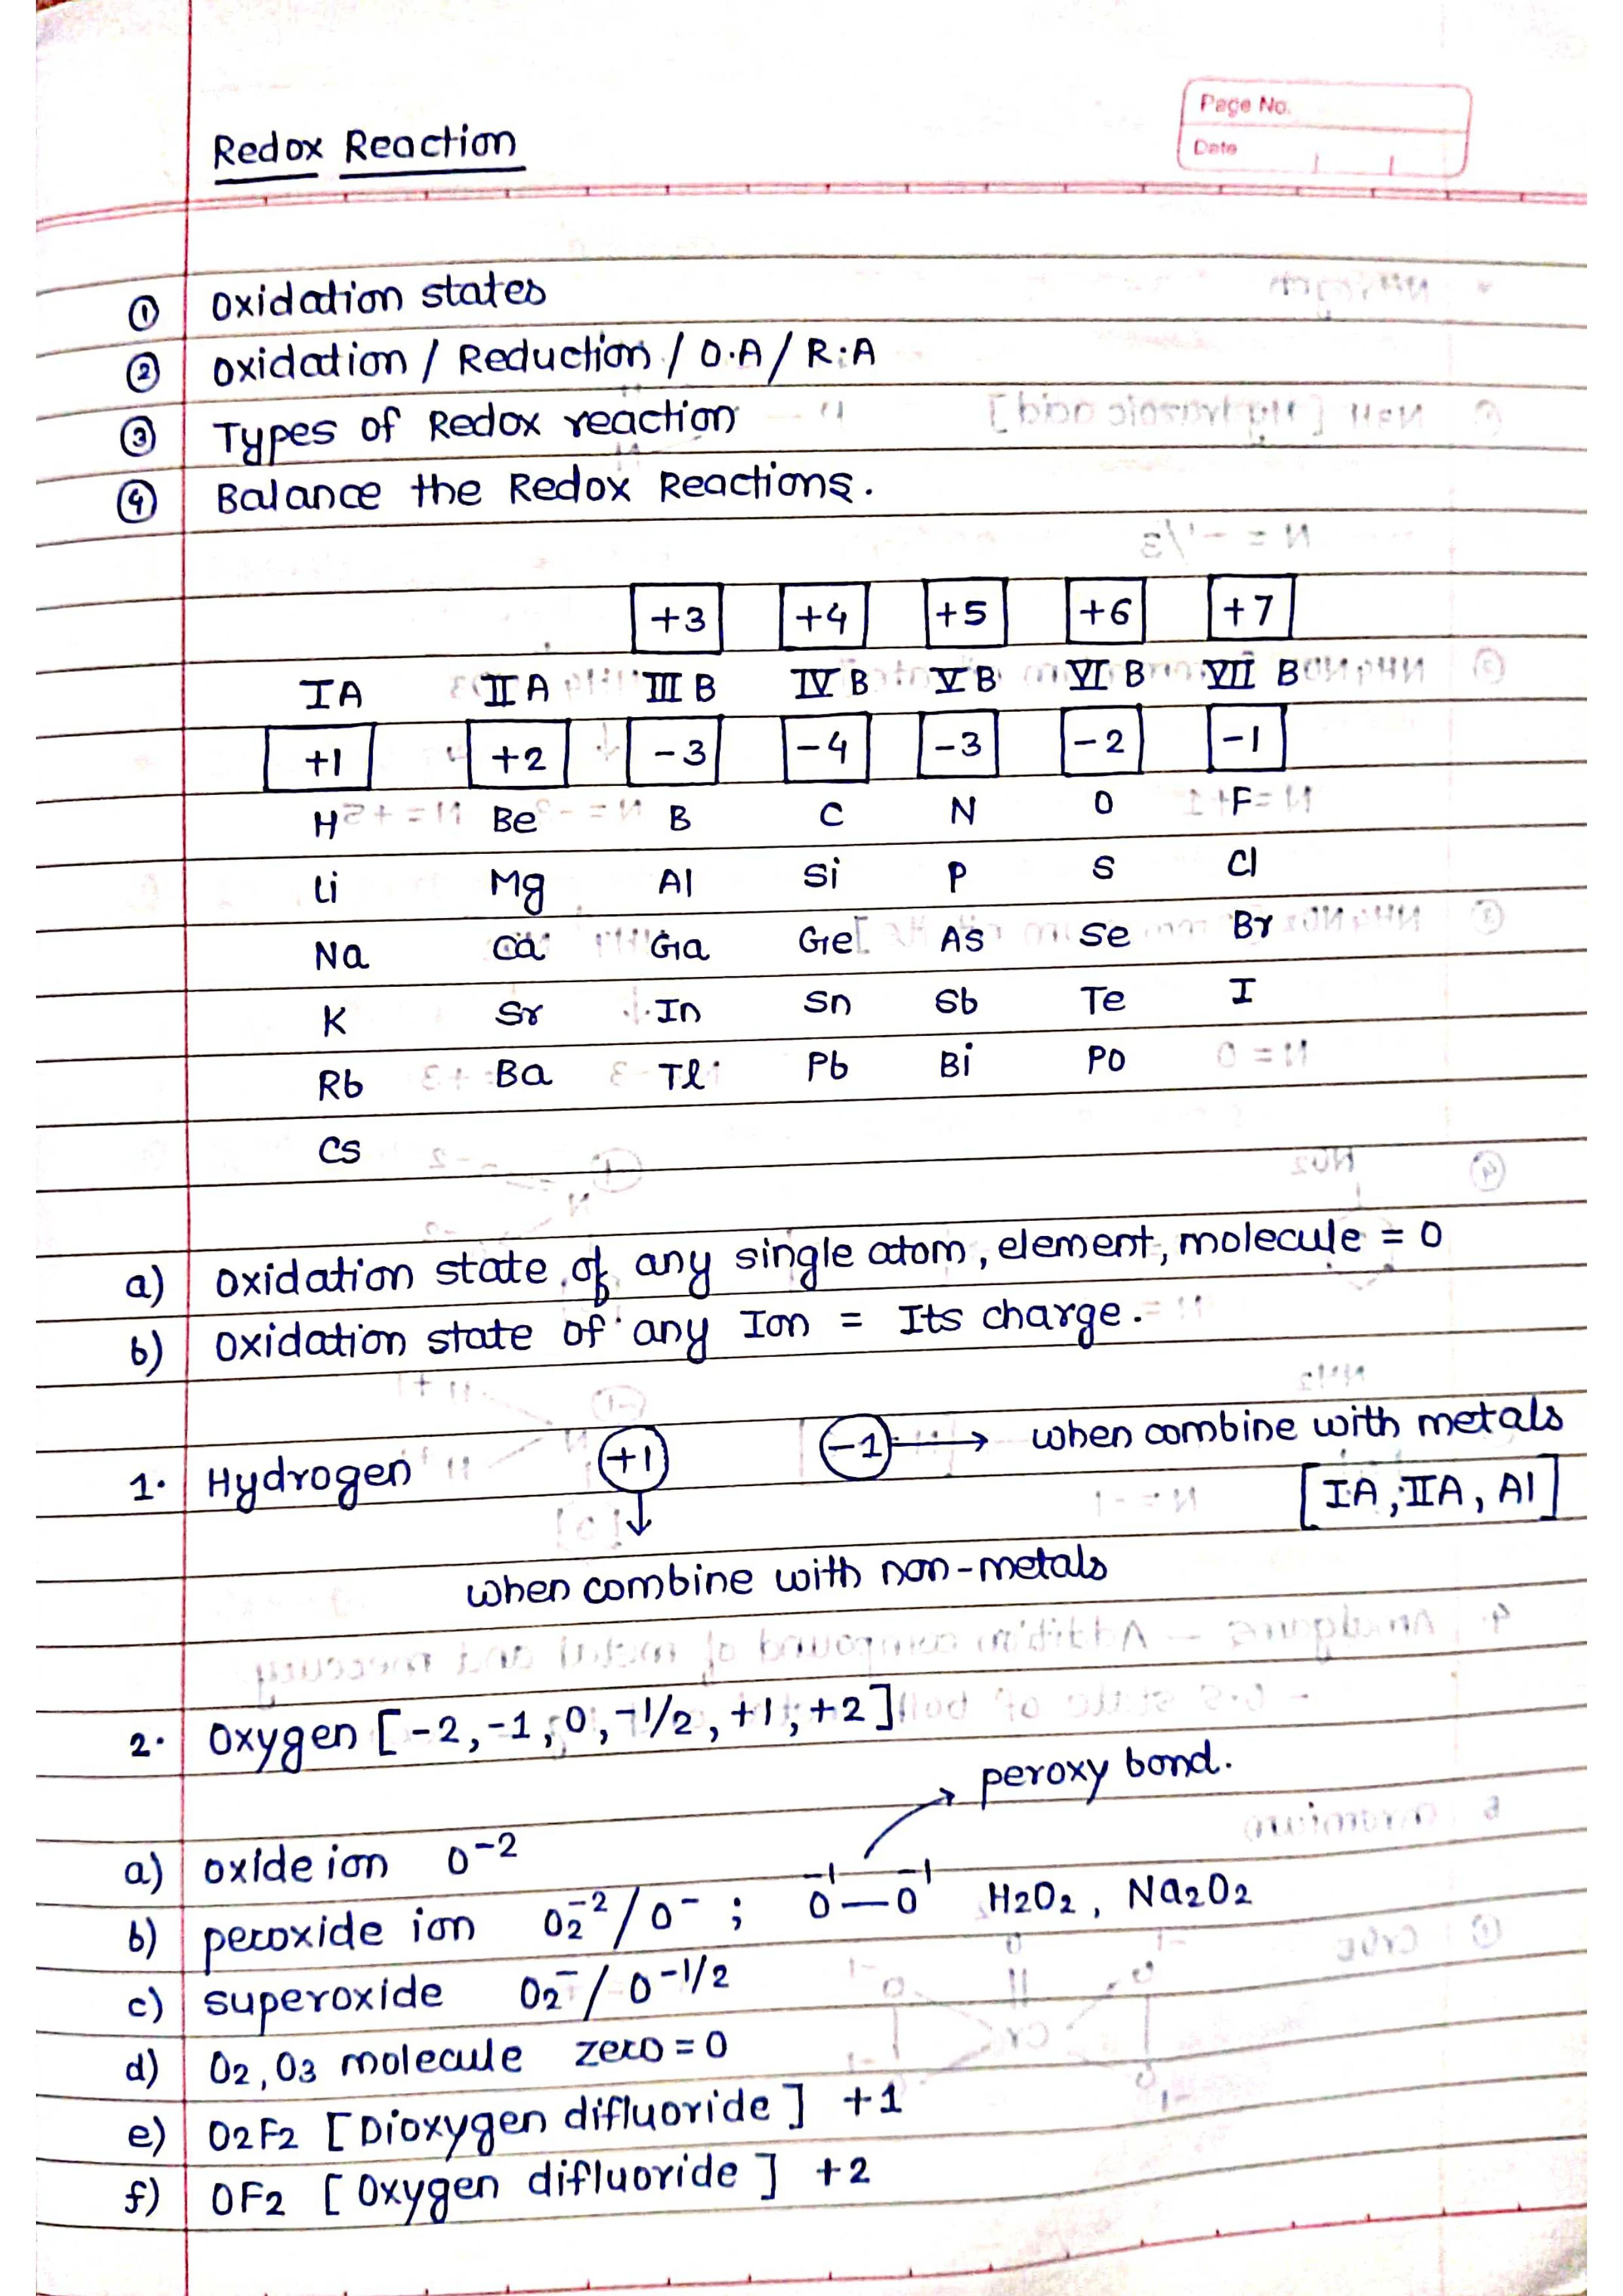 Page No.
Date
Redox Reaction
① Oxidation states
② Oxidation / Reduction / O.A / R.A
③ Types of Redox reaction
④ Balance the Redox Reactions.
+3 +4 +5 +6 +7
IA IIA III B IV B V B VI B VII B
+1 +2 -3 -4 -3 -2 -1
H Be B C N O F
Li Mg Al Si P S Cl
Na Ca Ga Ge As Se Br
K Sr In Sn Sb Te I
Rb Ba Tl Pb Bi Po
Cs
a) Oxidation state of any single atom, element, molecule = 0
b) Oxidation state of any Ion = Its charge.
1. Hydrogen +1 -1 → when combine with metals
[IA, IIA, Al]
↓
when combine with non-metals
2. Oxygen [-2, -1, 0, -1/2, +1, +2]
peroxy bond.
a) oxide ion O⁻²
b) peroxide ion O₂⁻² / O⁻ ; O⁻¹—O⁻¹ H₂O₂, Na₂O₂
c) superoxide O₂⁻ / O⁻¹/²
d) O₂, O₃ molecule zero = 0
e) O₂F₂ [Dioxygen difluoride] +1
f) OF₂ [Oxygen difluoride] +2